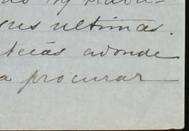 sus ultimas.
ticias adonde
a procurar